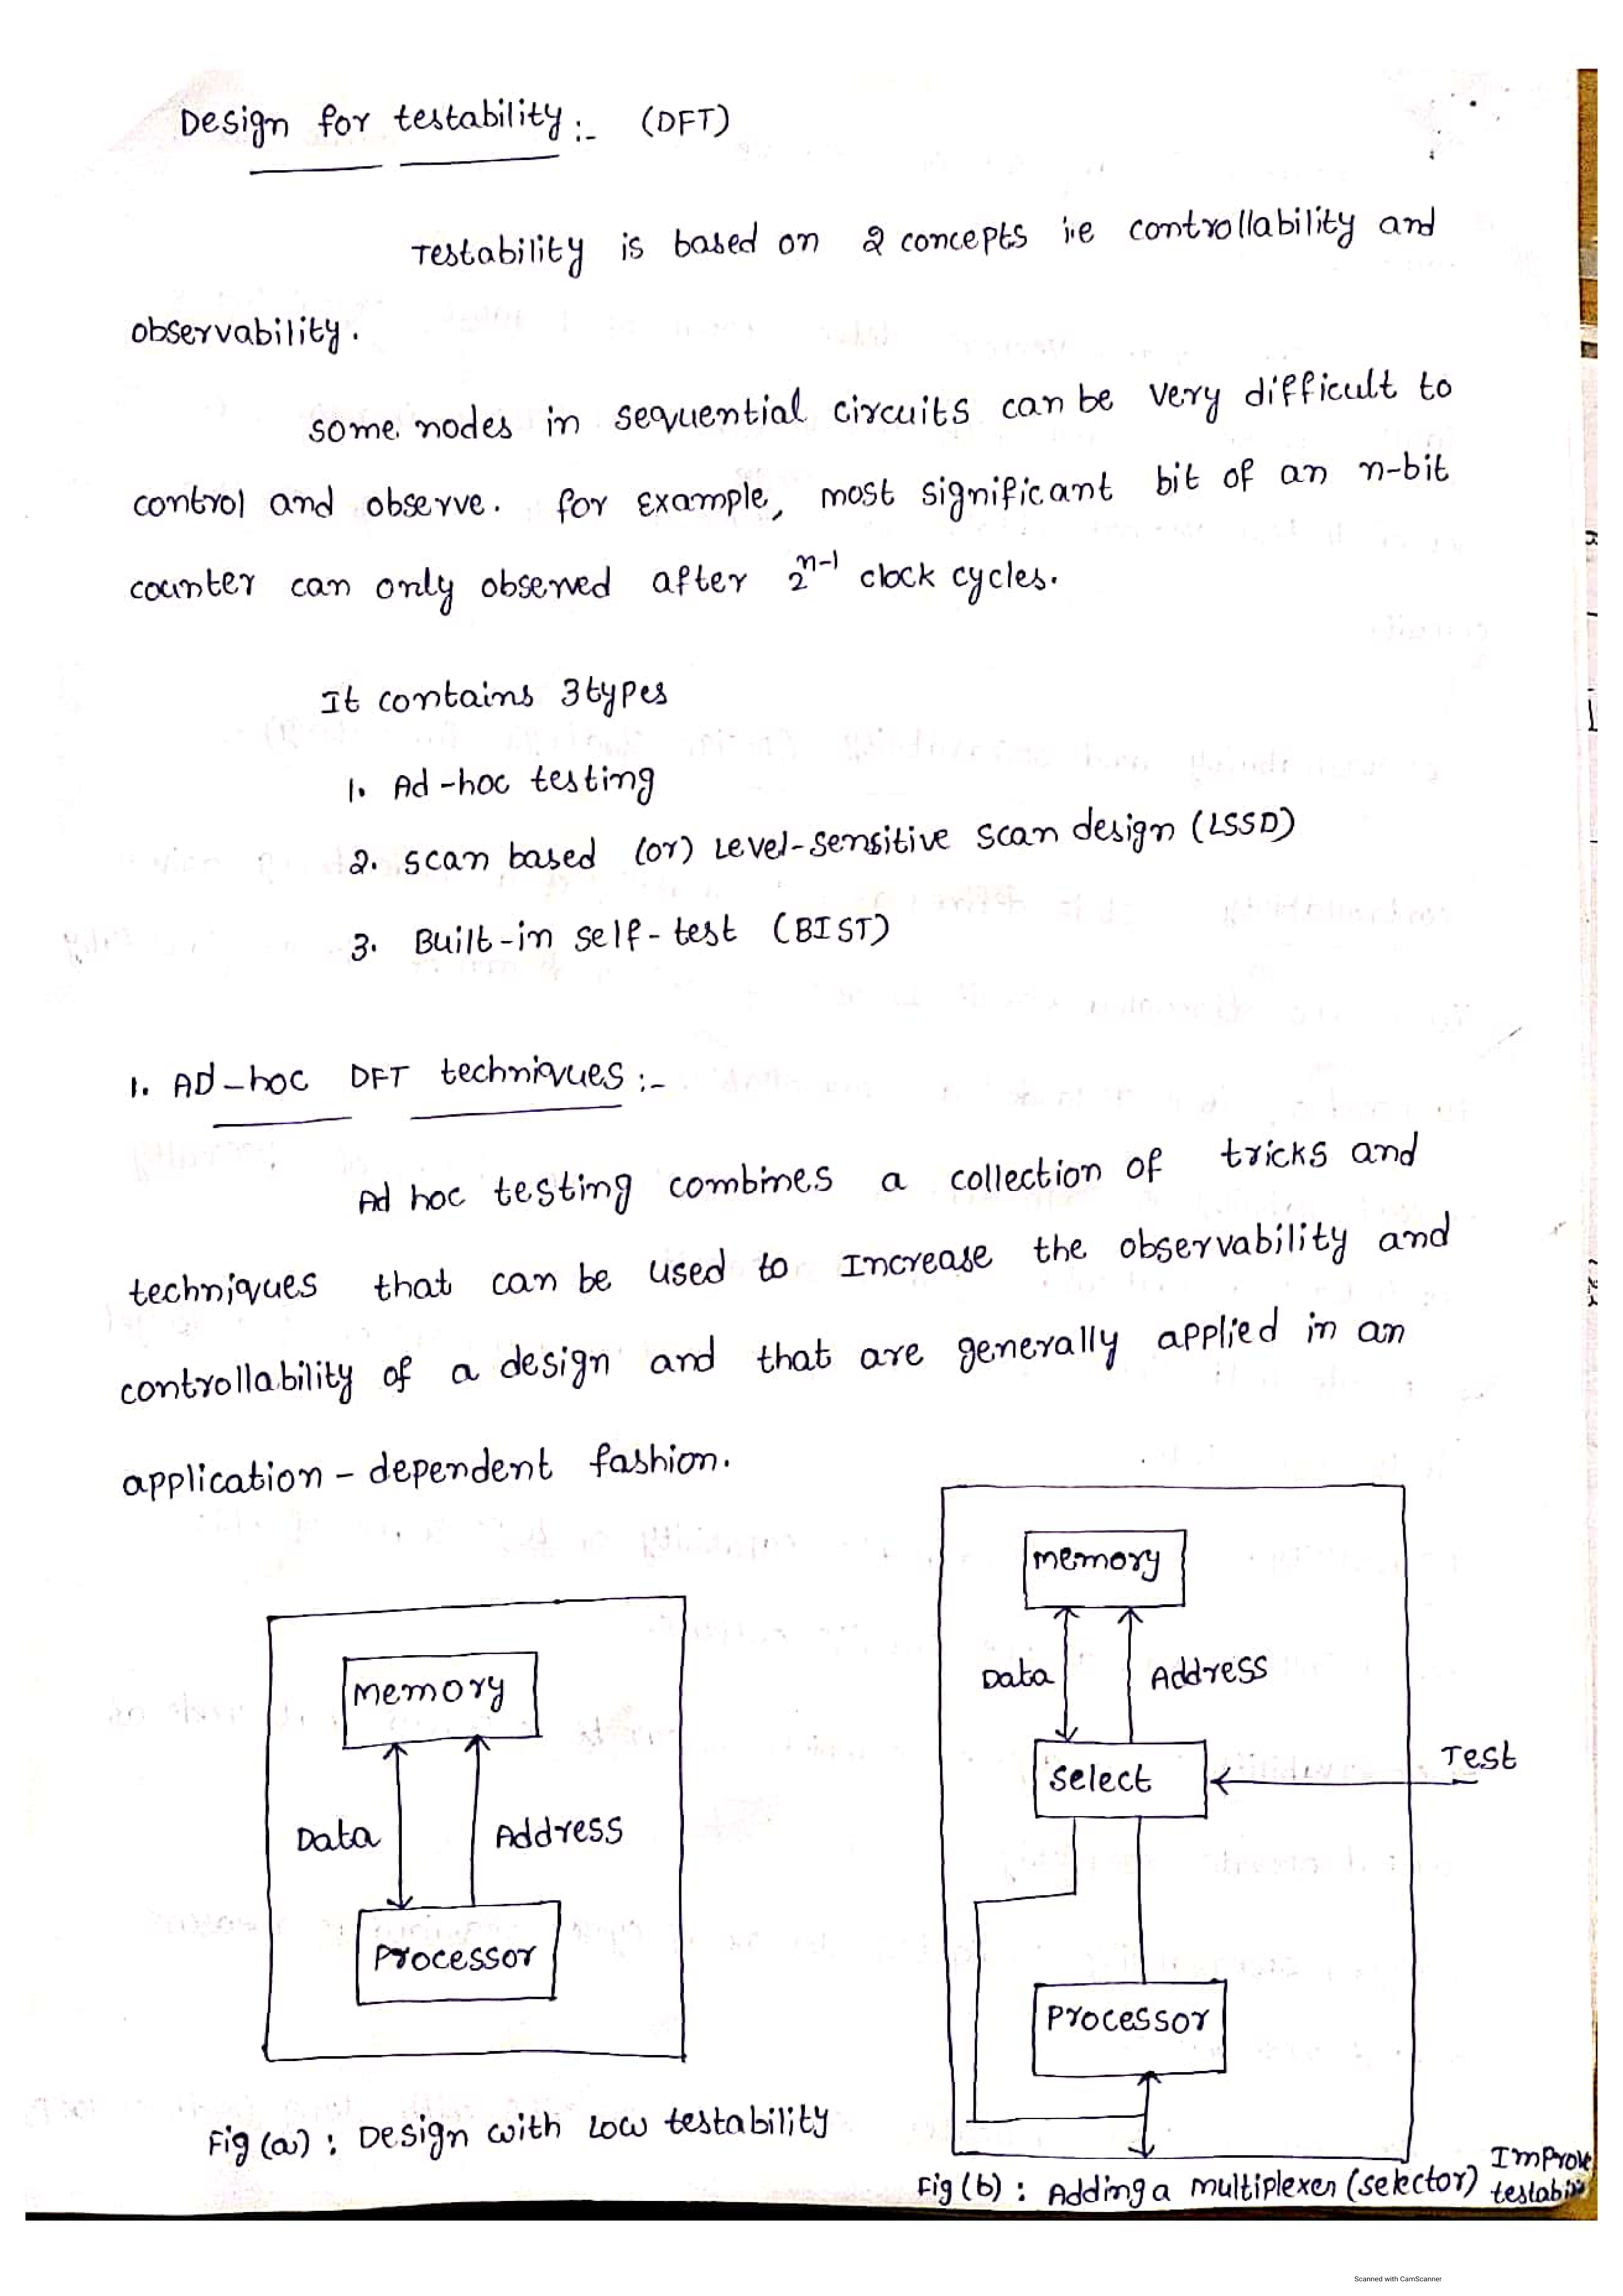 Design for testability :- (DFT)
Testability is based on 2 concepts i.e controllability and
observability.
some nodes in sequential circuits can be very difficult to
control and observe. for Example, most significant bit of an n-bit
counter can only observed after 2^n-1 clock cycles.
It contains 3 types
1. Ad-hoc testing
2. scan based (or) Level-sensitive scan design (LSSD)
3. Built-in self-test (BIST)
1. AD-hoc DFT techniques :-
Ad hoc testing combines a collection of tricks and
techniques that can be used to Increase the observability and
controllability of a design and that are generally applied in an
application-dependent fashion.
memory
Data
Address
Processor
Fig (a) : Design with low testability
memory
Data
Address
select
Test
Processor
Fig (b) : Adding a multiplexer (selector) Improve
Scanned with CamScanner